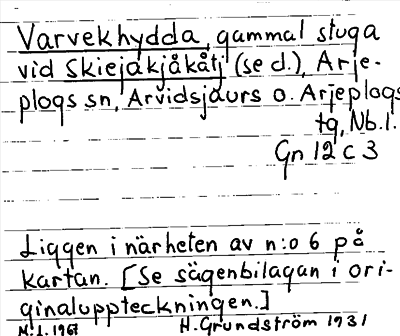 Varvekhydda, gammal stuga
vid Skiejakjåkåtj (se d.), Arje-
plogs sn, Arvidsjaurs o. Arjeplogs
tg, Nb.l.
Gn 12 c 3
Liggen i närheten av n:o 6 på
kartan. [Se sägenbilagan i ori-
ginaluppteckningen.]
H. Grundström 1931